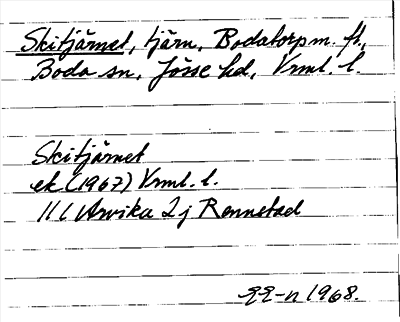 Skitjärnet, tjärn, Bodatorp m. fl.,
Boda sn, Jösse hd, Vrml. l.
Skitjärnet
ek (1967) Vrml. l.
11 C Arvika 2 j Rennstad
1968.